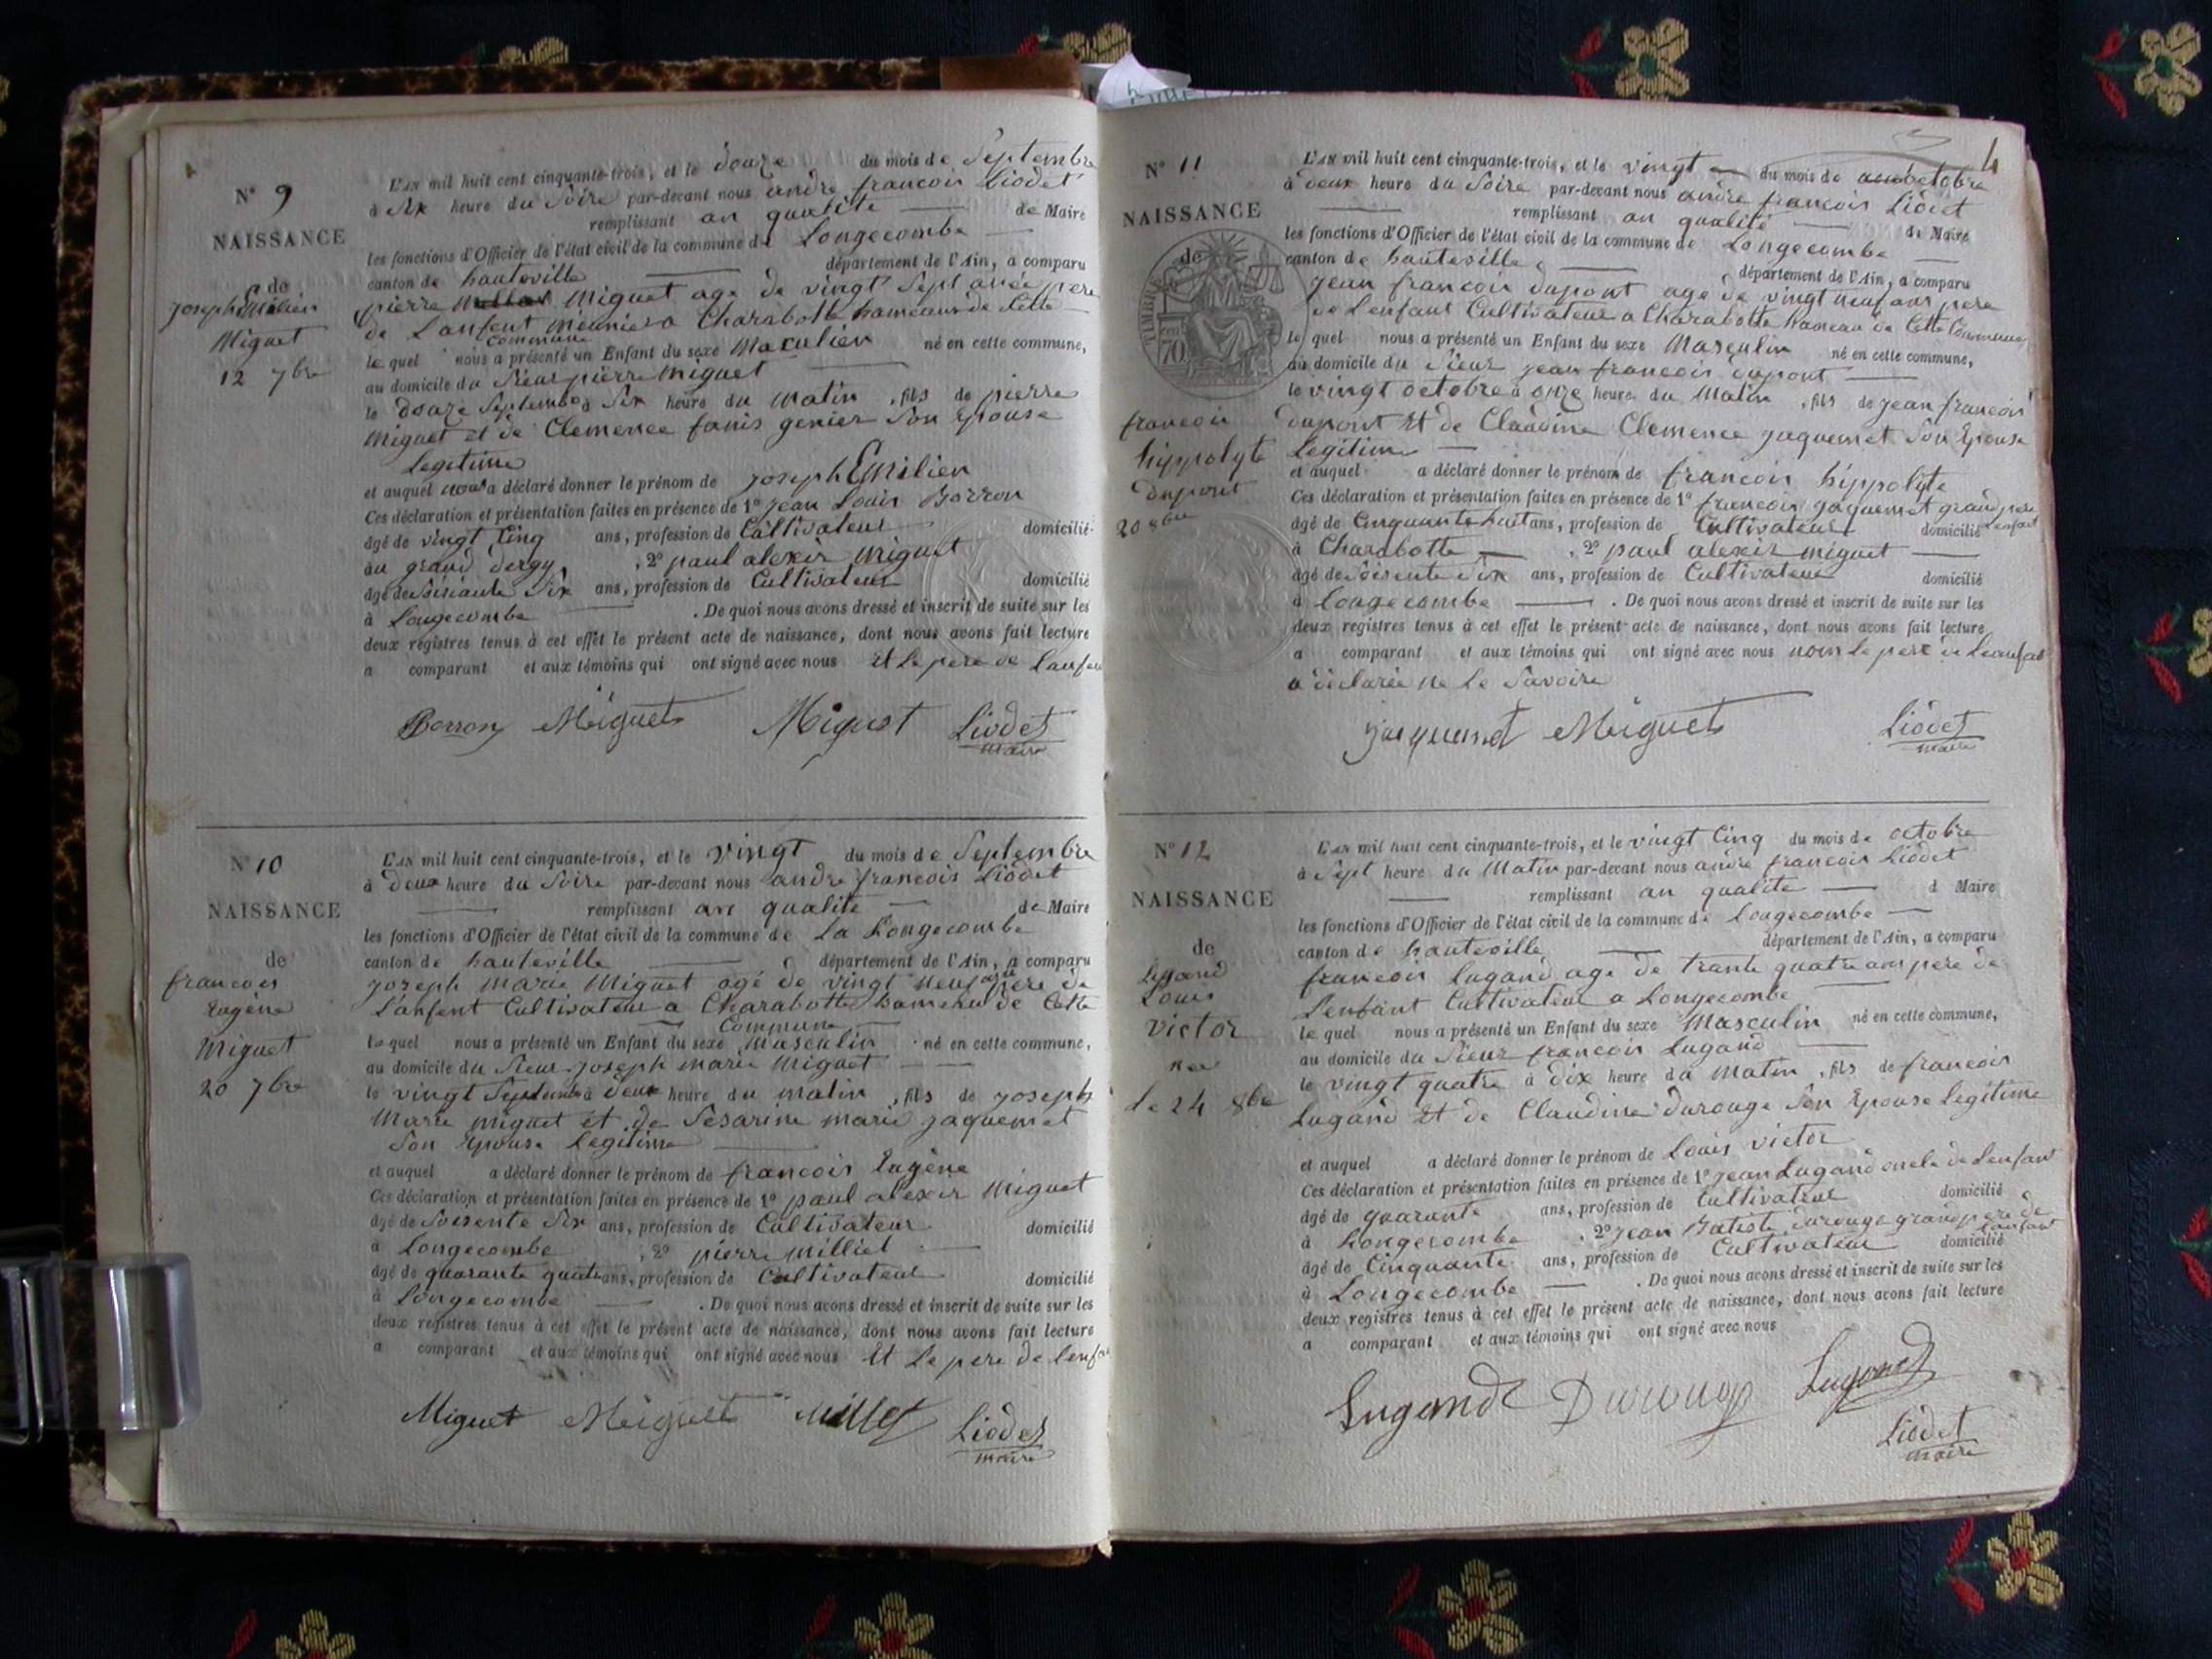 N° 9
NAISSANCE
de
joseph Emilien
Miguet
12 7bre
L'AN mil huit cent cinquante-trois, et le douze du mois de Septembre
à Six heure du Soire par-devant nous andre francois Liodet
remplissant an qualité de Maire
les fonctions d'Officier de l'état civil de la commune de Longecombe
canton de hauteville département de l'Ain, a comparu
pierre Miguet age de vingt Sept pere
de Lanfent meunier a Charabotte hameaux de Cette
commune
le quel nous a présenté un Enfant du sexe Maculien né en cette commune,
au domicile du Sieur pierre Miguet
le douze Septembre à Six heure du matin, fils de pierre
Miguet et de Clemence fanis genier Son Epouse
Legitime
et auquel nous a déclaré donner le prénom de joseph Emilien
Ces déclaration et présentation faites en présence de 1° jean Louis Borron
âgé de vingt Cinq ans, profession de Cultivateur domicilié
au grand dergy, 2° paul alexis Miguet
âgé de Soisiante Six ans, profession de Cultivateur domicilié
à Longecombe. De quoi nous avons dressé et inscrit de suite sur les
deux registres tenus à cet effet le présent acte de naissance, dont nous avons fait lecture
a comparant et aux témoins qui ont signé avec nous Et Le pere de Lanfen
Borron Miguet Miguet Liodet
maire
N° 10
NAISSANCE
de
francois
Eugène
Miguet
20 7bre
L'AN mil huit cent cinquante-trois, et le vingt du mois de Septembre
à deux heure du Soire par-devant nous andre francois Liodet
remplissant an qualite de Maire
les fonctions d'Officier de l'état civil de la commune de La Longecombe
canton de hauteville département de l'Ain, a comparu
joseph marie Miguet agé de vingt neuf ans pere de
L'anfent Cultivateur a Charabotte hameau de Cette
Commune
le quel nous a présenté un Enfant du sexe Masculin né en cette commune,
au domicile du Sieur joseph marie Miguet
le vingt Septembre à deux heure du matin, fils de joseph
Marie miguet et de Sesarine marie jaquemet
Son Epouse Legitime
et auquel a déclaré donner le prénom de francois Eugène
Ces déclaration et présentation faites en présence de 1° paul alexis Miguet
âgé de Soisente Six ans, profession de Cultivateur domicilié
à Longecombe, 2° pierre Milliet
âgé de quarante quatre ans, profession de Cultivateur domicilié
à Longecombe. De quoi nous avons dressé et inscrit de suite sur les
deux registres tenus à cet effet le présent acte de naissance, dont nous avons fait lecture
a comparant et aux témoins qui ont signé avec nous Et Le pere de Lenfa
Miguet Miguet Millet Liodet
maire
4
N° 11
NAISSANCE
de
TIMBRE
70
francois
hippolyte
dupont
20 8bre
L'AN mil huit cent cinquante-trois, et le vingt du mois de octobre
à deux heure du Soire par-devant nous andre francois Liodet
remplissant an qualité de Maire
les fonctions d'Officier de l'état civil de la commune de Longecombe
canton de hauteville département de l'Ain, a comparu
jean francois dupont age de vingt neuf ans pere
de Lenfant Cultivateur a Charabotte hameau de Cette Commune
le quel nous a présenté un Enfant du sexe Masculin né en cette commune,
au domicile du Sieur jean francois dupont
le vingt octobre à onze heure du Matin, fils de jean francois
dupont Et de Claudine Clemence jaquemet Son Epouse
Legitime
et auquel a déclaré donner le prénom de francois hippolyte
Ces déclaration et présentation faites en présence de 1° francois jaquemet grand pere
âgé de Cinquante huit ans, profession de Cultivateur domicilié Lenfant
à Charabotte, 2° paul alexis miguet
âgé de Soisente Six ans, profession de Cultivateur domicilié
à Longecombe. De quoi nous avons dressé et inscrit de suite sur les
deux registres tenus à cet effet le présent acte de naissance, dont nous avons fait lecture
a comparant et aux témoins qui ont signé avec nous non Le pere de Leanfat
a déclarée ne Le Savoire
jaquemet Miguet Liodet
maire
N° 12
NAISSANCE
de
Lugand
Louis
victor
nee
le 24 8bre
L'AN mil huit cent cinquante-trois, et le vingt Cinq du mois de octobre
à Sept heure du Matin par-devant nous andre francois Liodet
remplissant an qualite d Maire
les fonctions d'Officier de l'état civil de la commune de Longecombe
canton de hauteville département de l'Ain, a comparu
francois Lugand age de trante quatre ans pere de
Lenfant Cultivateur a Longecombe
le quel nous a présenté un Enfant du sexe Masculin né en cette commune,
au domicile du Sieur francois Lugand
le vingt quatre à dix heure du matin, fils de francois
Lugand Et de Claudine durouge Son Epouse Legitime
et auquel a déclaré donner le prénom de Louis victor
Ces déclaration et présentation faites en présence de 1° jean Lugand oncle de Lenfant
âgé de quarante ans, profession de Cultivateur domicilié
à Longecombe, 2° jean Batiste durouge grand pere de
Lanfant
âgé de Cinquante ans, profession de Cultivateur domicilié
à Longecombe. De quoi nous avons dressé et inscrit de suite sur les
deux registres tenus à cet effet le présent acte de naissance, dont nous avons fait lecture
a comparant et aux témoins qui ont signé avec nous
Lugand Durouge Lugand
Liodet
maire